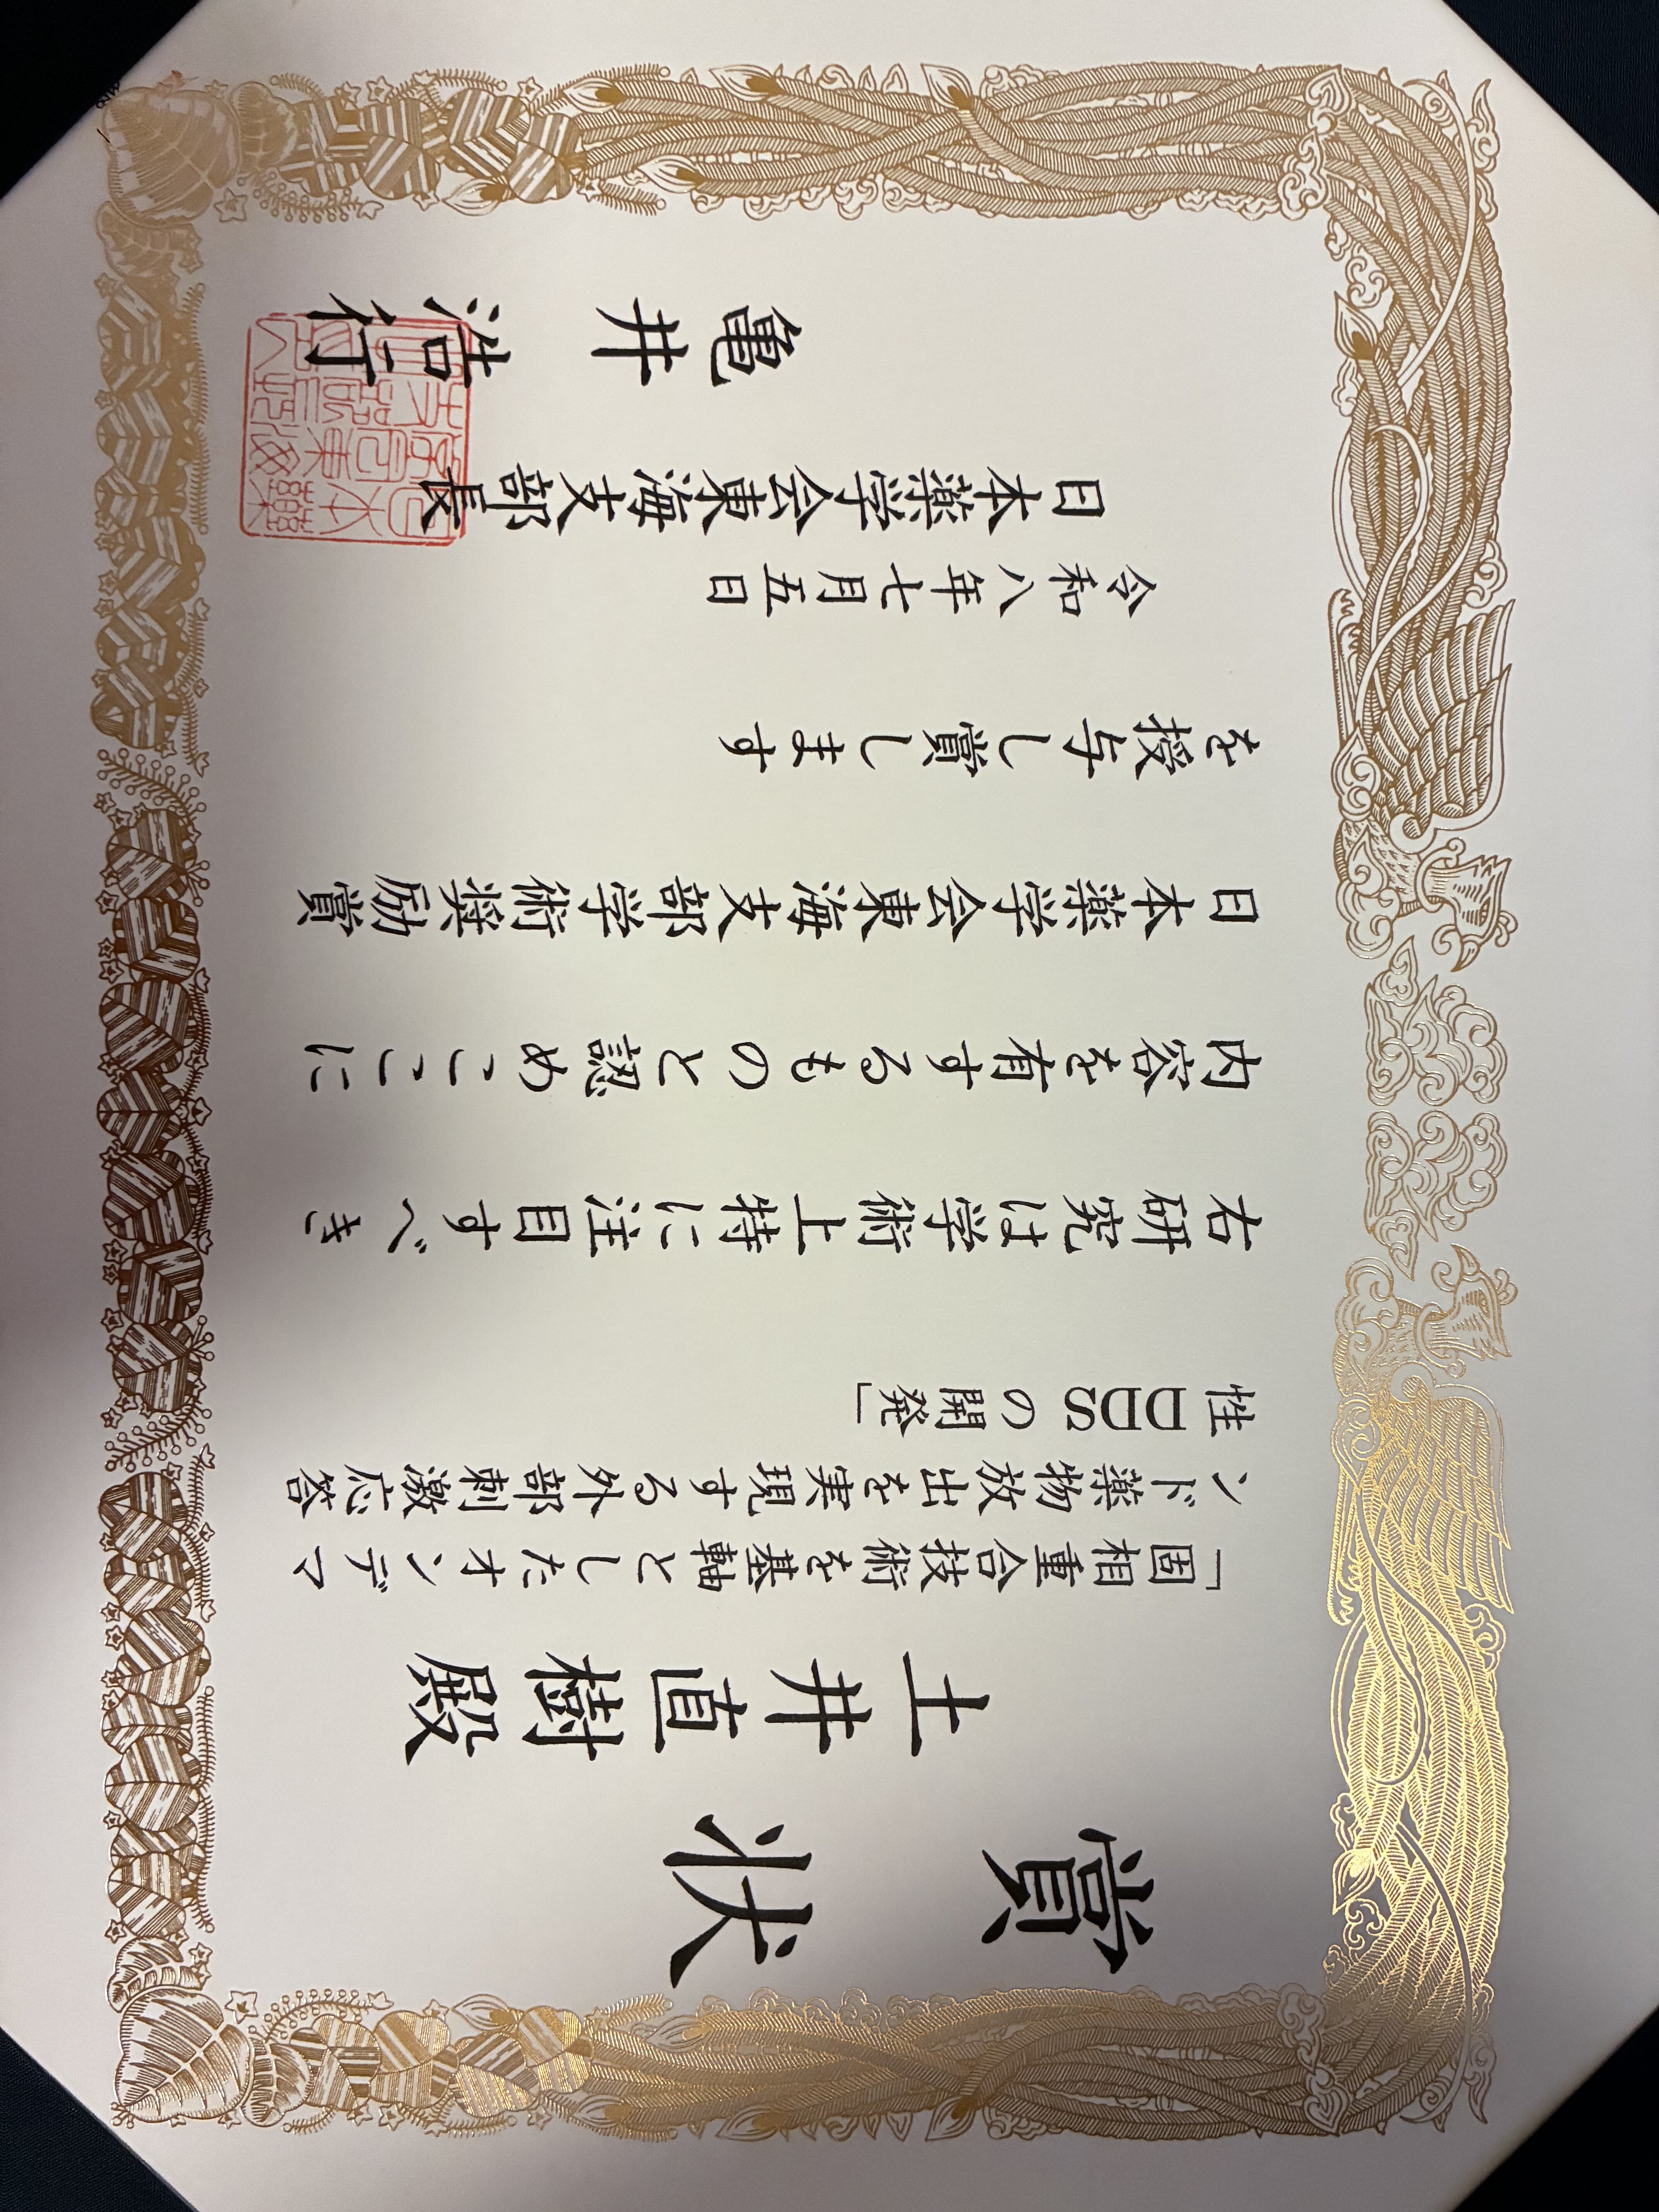 賞状
土井直樹殿
「固相重合技術を基軸としたオンデマ
ンド薬物放出を実現する外部刺激応答
性DDSの開発」
右研究は学術上特に注目すべき
内容を有するものと認めここに
日本薬学会東海支部学術奨励賞
を授与し賞します
令和八年七月五日
日本薬学会東海支部長
亀井浩行